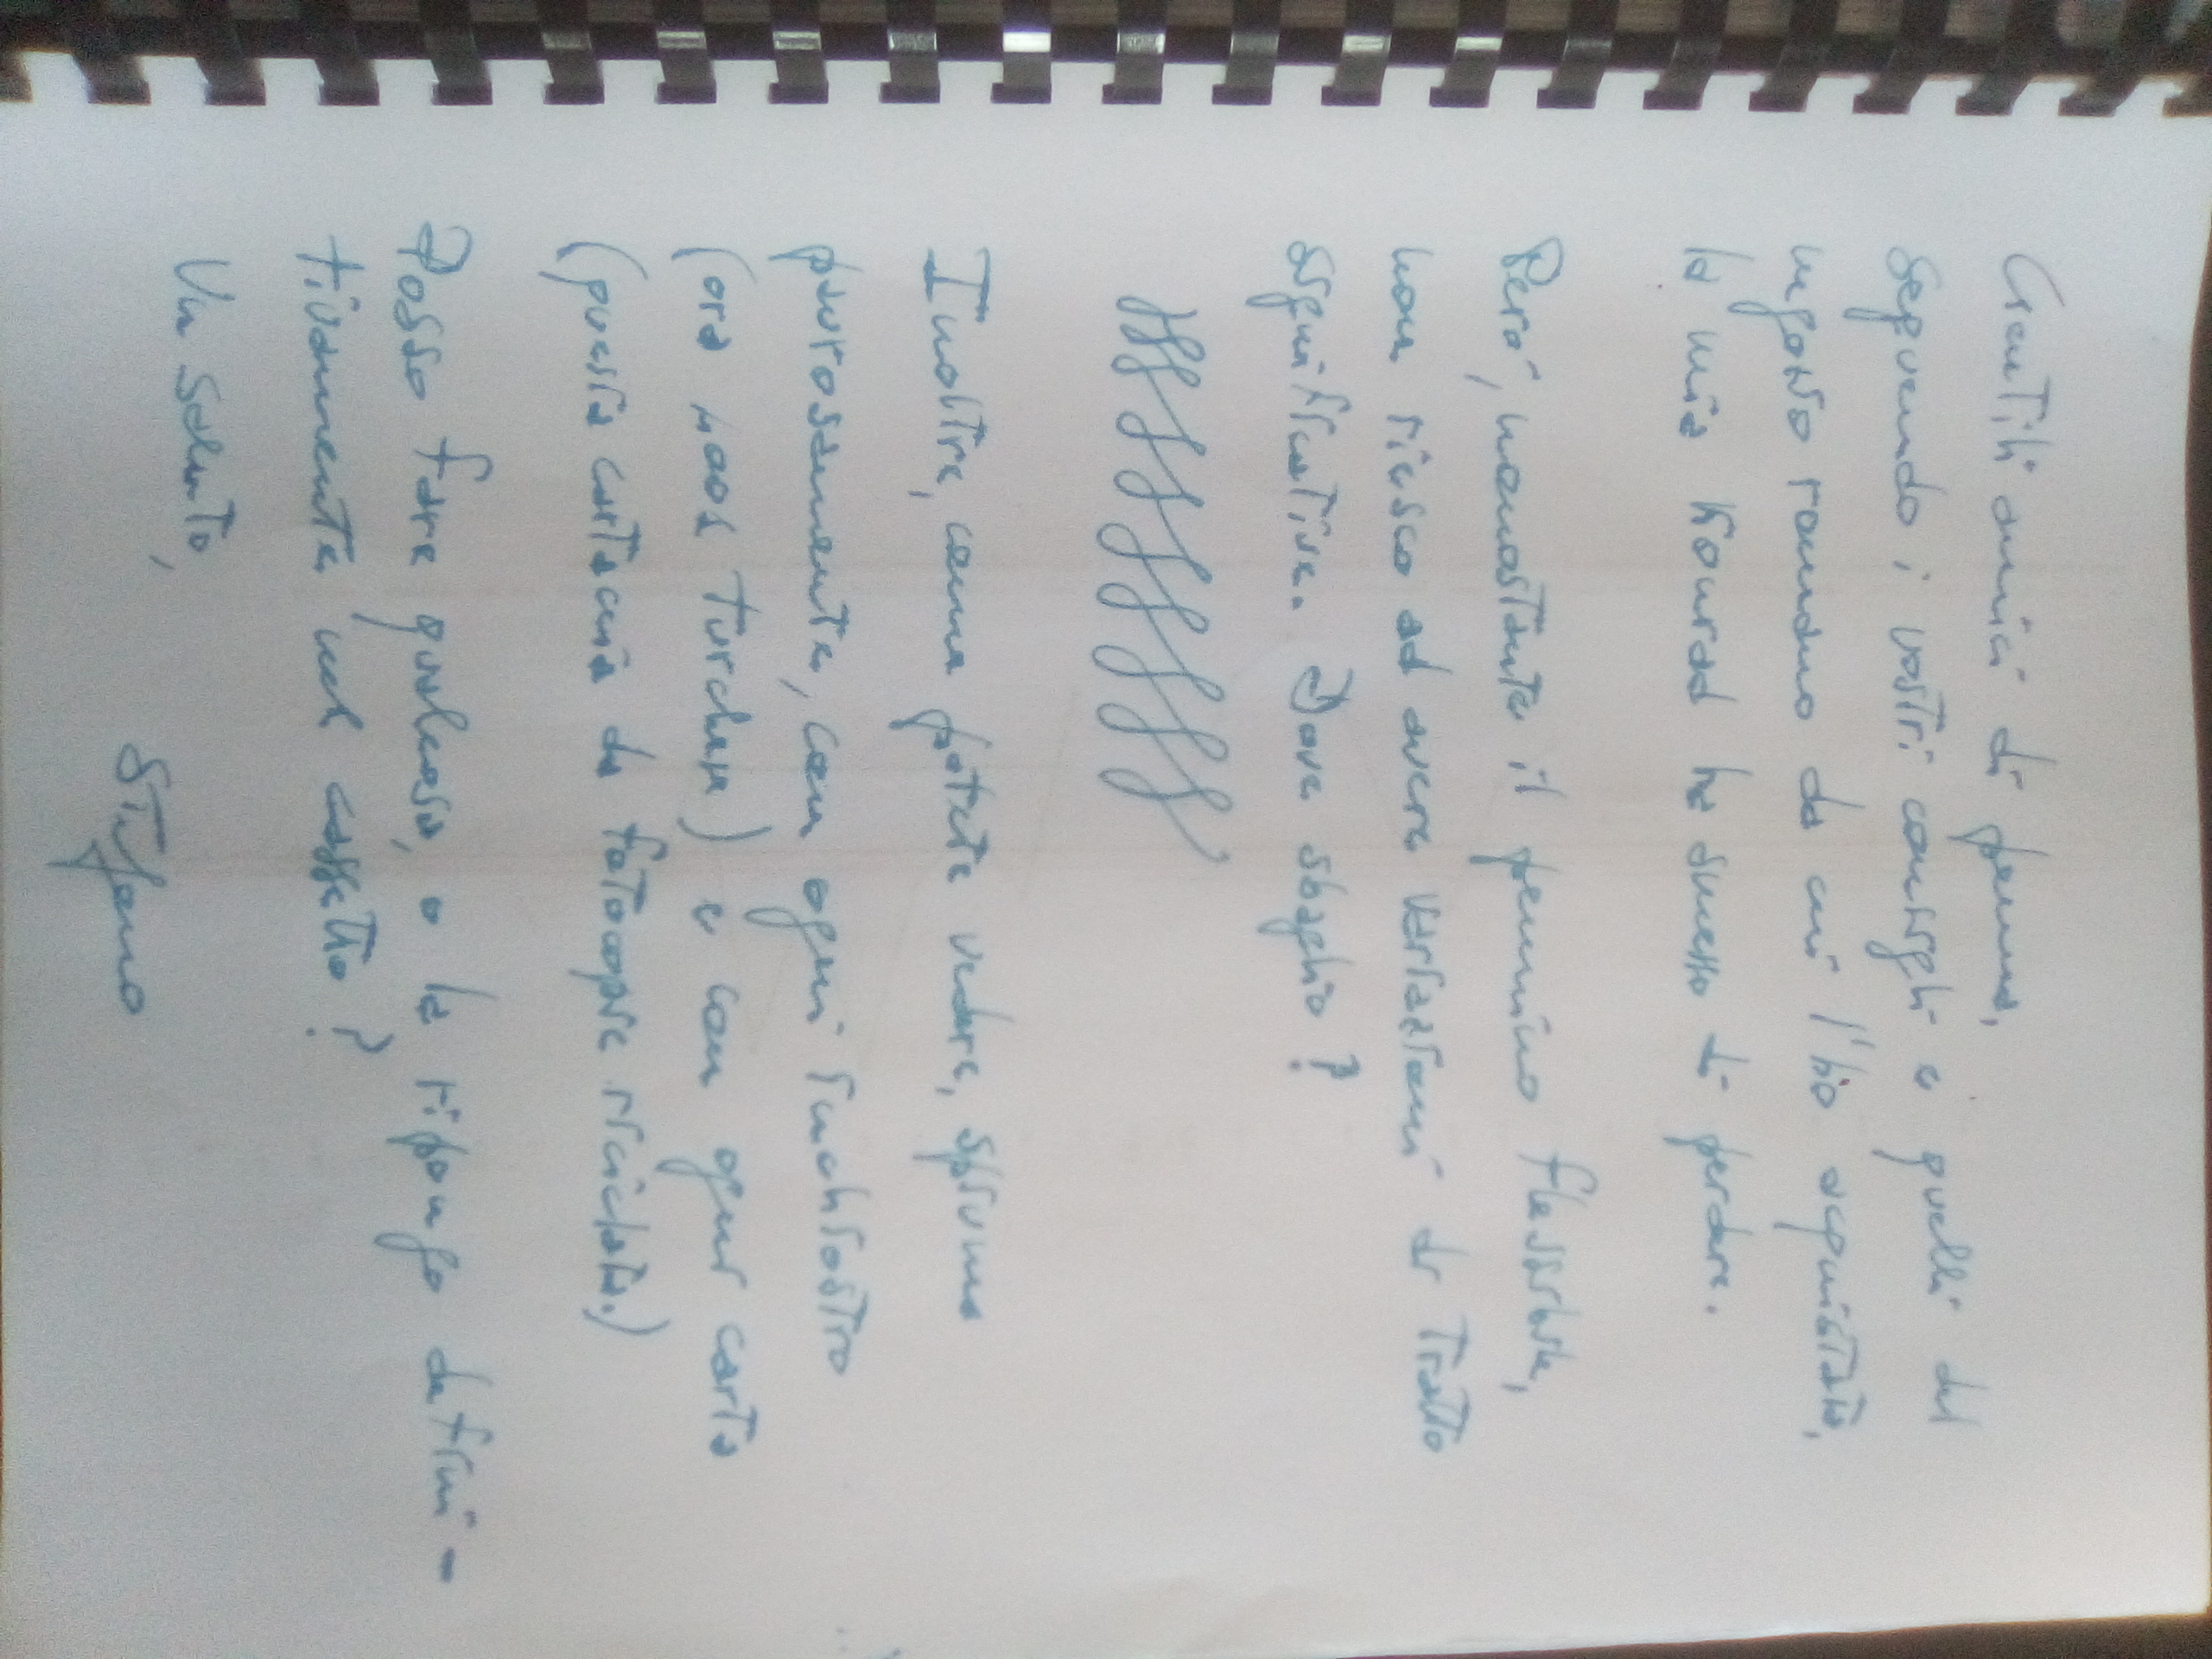 Gentili amici di penna,
seguendo i vostri consigli e quelli del
negozio romano da cui l'ho acquistata,
la mia Konrad ha smesso di perdere.
Però, nonostante il pennino flessibile,
non riesco ad avere variazioni di tratto
significative. Dove sbaglio?
Inoltre, come potete vedere, spiuma
paurosamente, con ogni inchiostro
(ora uso turchese) e con ogni carta
(questa cartaccia da fotocopie riciclata.)
Posso fare qualcosa, o la ripongo defini-
tivamente nel cassetto?
Un saluto,
Stefano